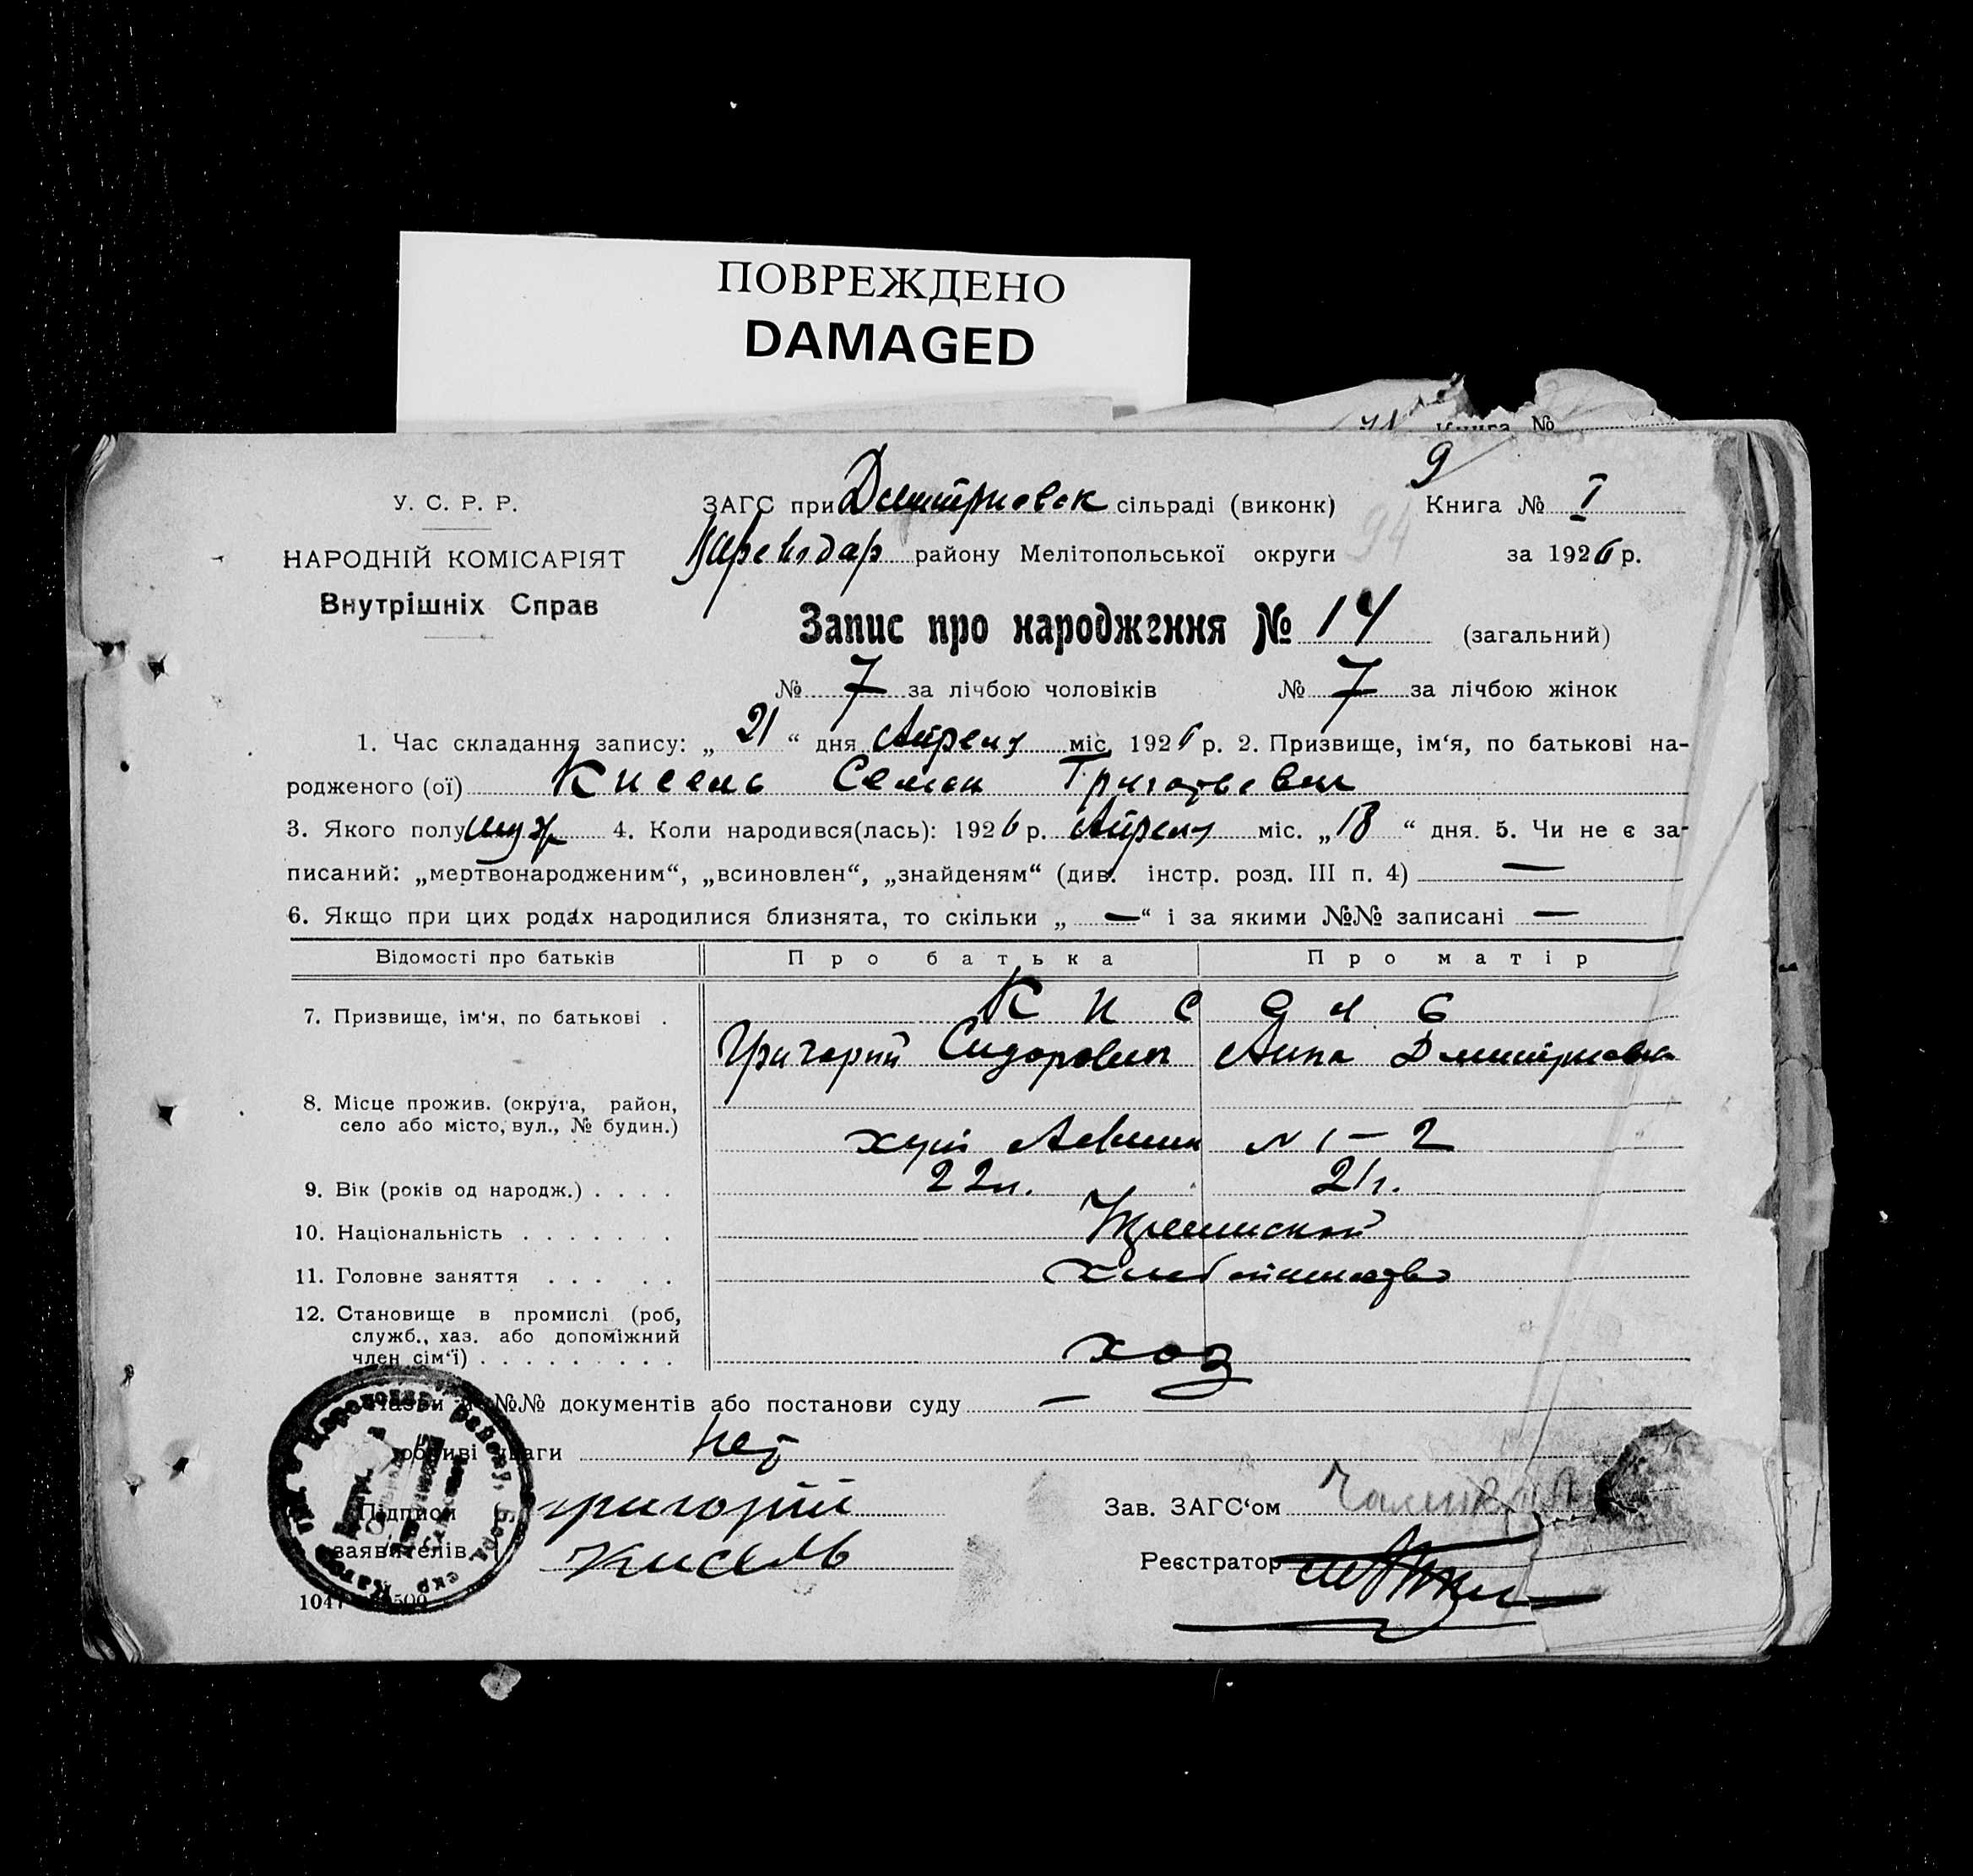 ПОВРЕЖДЕНО
DAMAGED
Книга №
9
У. С. Р. Р.
ЗАГС при Дмитриевск сільраді (виконк)
Книга № I
94
НАРОДНІЙ КОМІСАРІЯТ
району Мелітопольської округи
за 1926 р.
Внутрішніх Справ
Запис про народження № 14 (загальний)
№ 7 за лічбою чоловіків № 7 за лічбою жінок
1. Час складання запису: „ 21 “ дня Апреля міс. 1926 р. 2. Призвище, ім'я, по батькові на-
родженого (ої) Кисель Семен Григорьевич
3. Якого полу муж 4. Коли народився(лась): 1926 р. Апреля міс. „ 18 “ дня. 5. Чи не є за-
писаний: „мертвонародженим“, „всиновлен“, „знайденям“ (див. інстр. розд. III п. 4) —
6. Якщо при цих родах народилися близнята, то скільки „ — “ і за якими №№ записані —
Відомості про батьків Про батька Про матір
7. Призвище, ім'я, по батькові . Кисель
Григорий Сидорович Анна Дмитриевна
8. Місце прожив. (округа, район,
село або місто, вул., № будин.)
хут N 1 — 2
9. Вік (років од народж.) . . . . 22 л. 21 г.
10. Національність . . . . . . .
11. Головне заняття . . . . .
12. Становище в промислі (роб,
служб., хаз. або допоміжний
член сім'ї) . . . . . . . . . хоз
№№ документів або постанови суду —
нет
Підписи Григорий
Зав. ЗАГС'ом
заявителів Кисель
Реєстратор